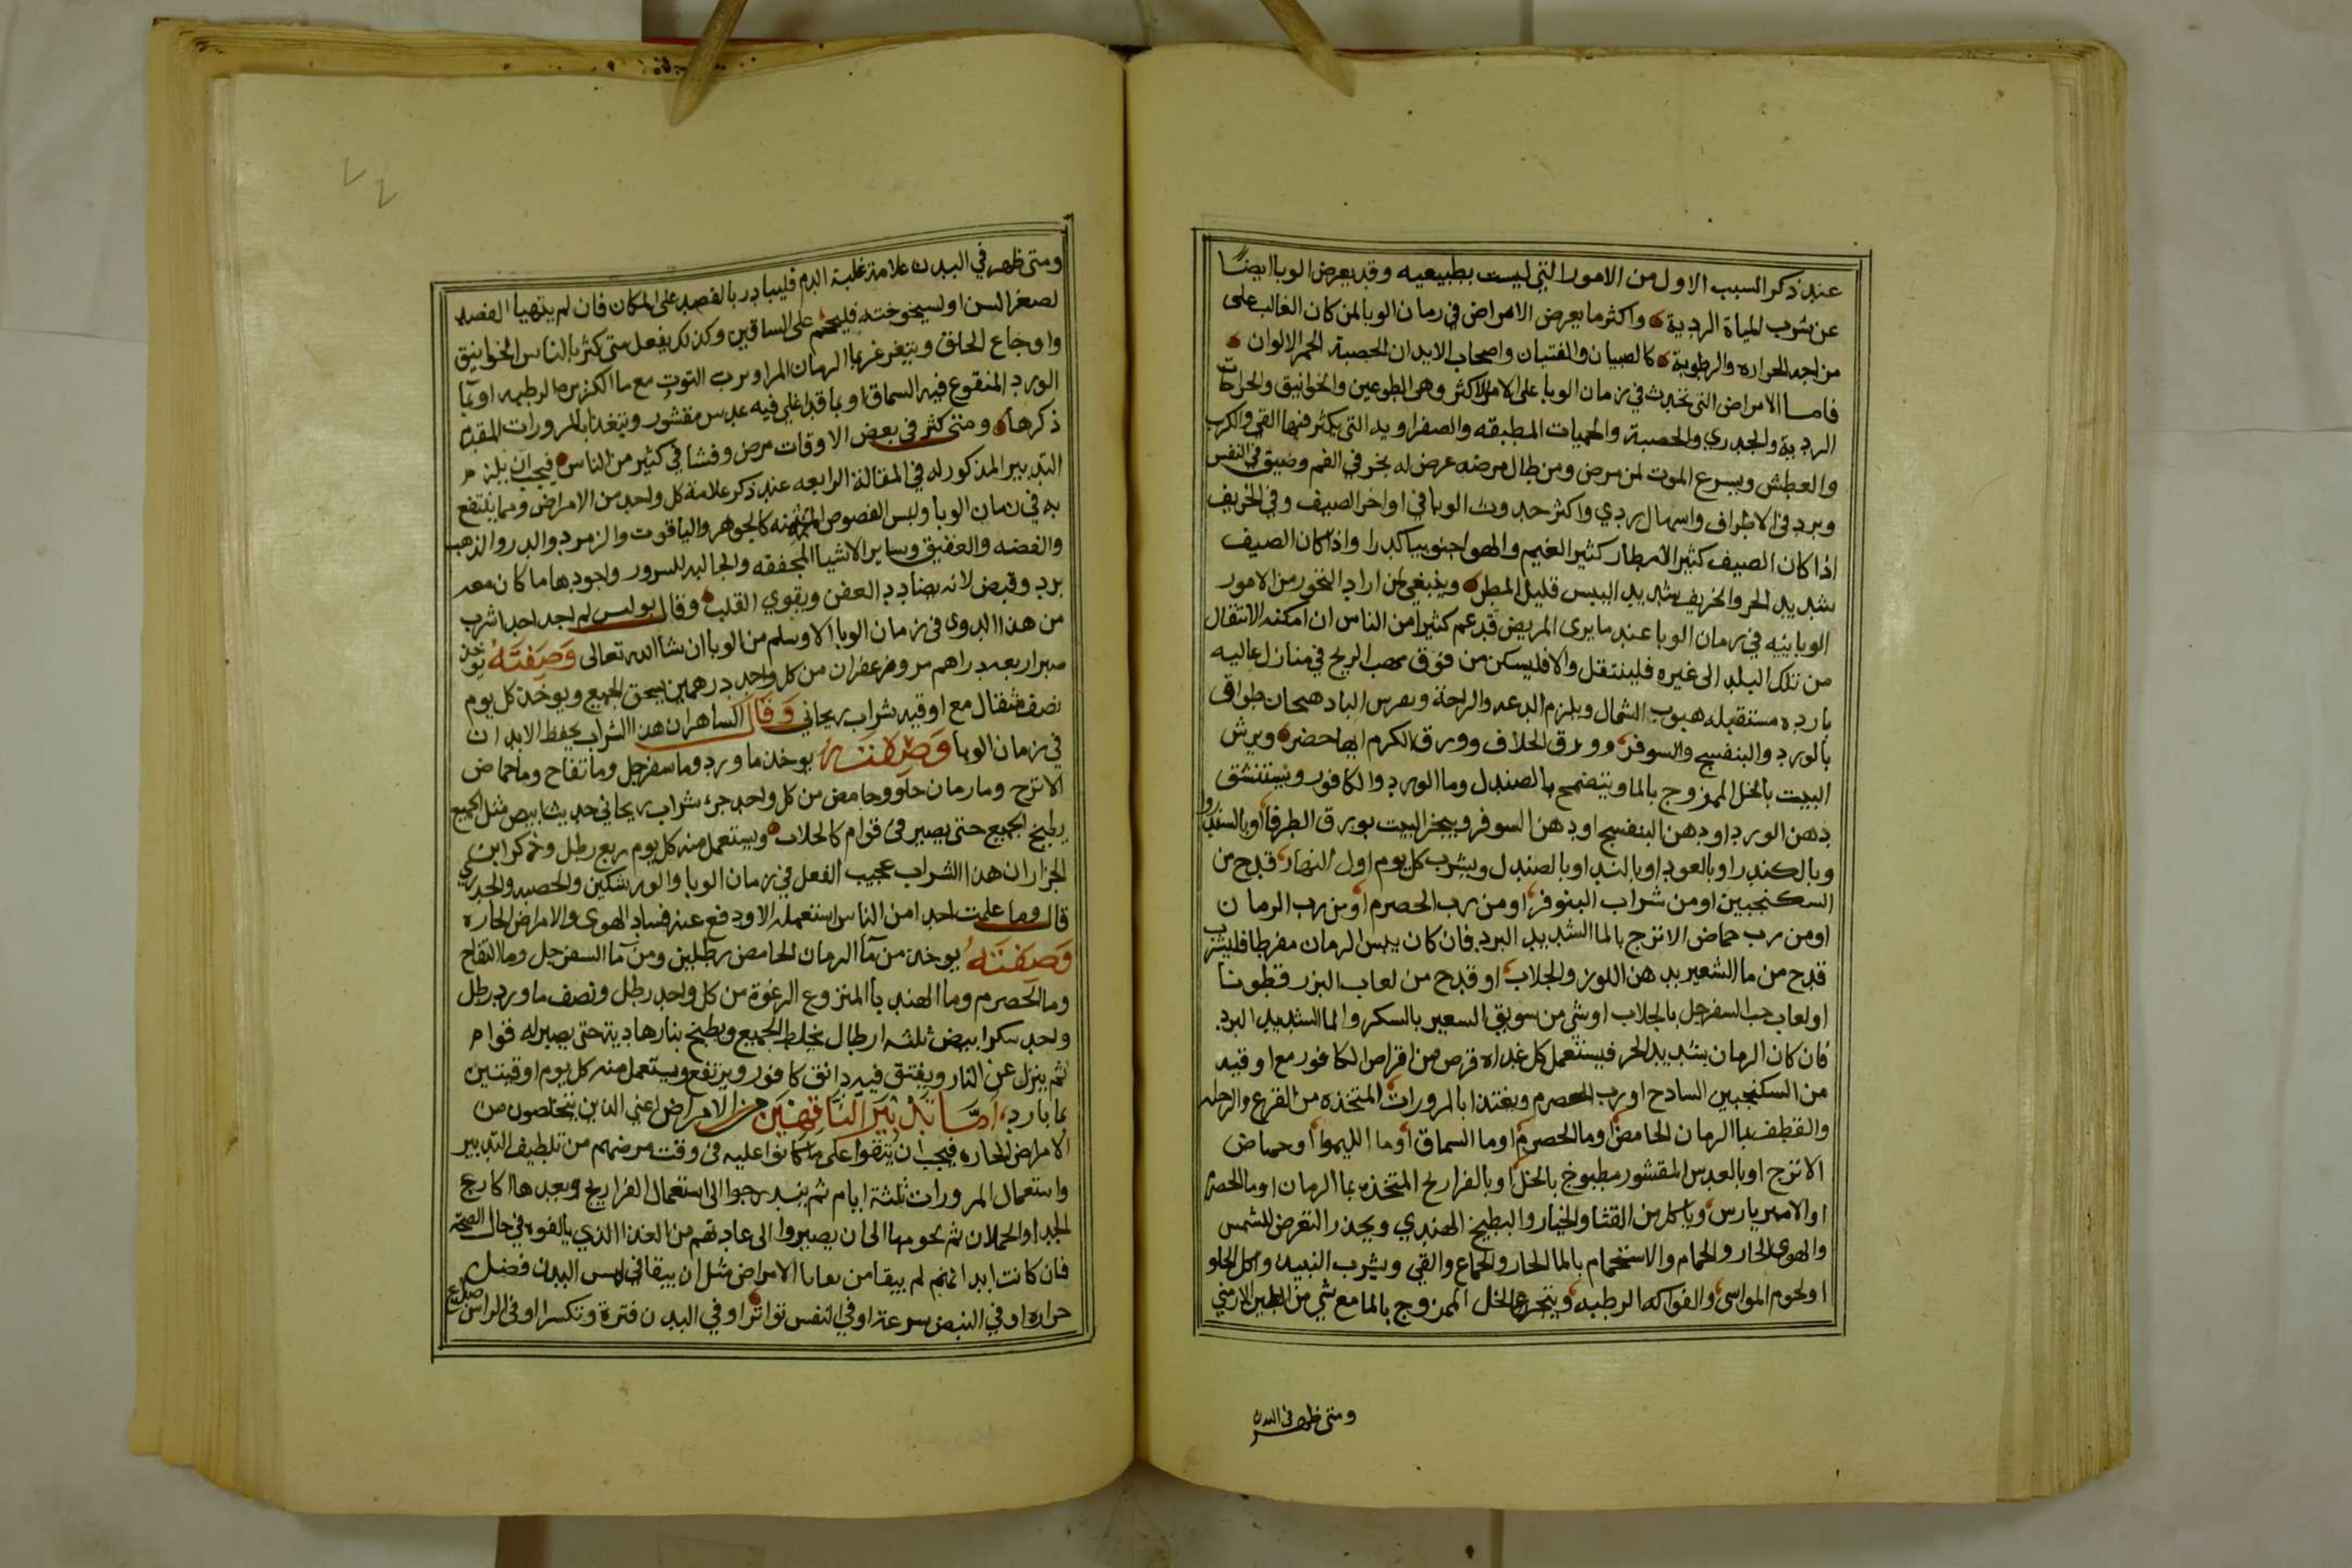 عند ذكر السبب الاول من الامور التي ليست بطبيعيه وقد يعرض الوبا ايضًا
عن شرب المياة الردية واكثر ما يعرض الامراض في زمان الوبا لمن كان الغالب على
من اجد الحراره والرطوبة كالصبيان والفتيان واصحاب الابدان الخصبة الحمر الالوان
فاما الامراض التي تحدث في زمان الوبا على الامر الاكثر وهي الطوعين والخوانيق والجراحات
الردية والجدري والحصبة والحميات المطبقه والصفراويه التي يكثر فيها القي والكرب
والعطش ويسرع الموت لمن مرض ومن طال مرضه عرض له بخر في الفم وضيق في النفس
وبرد في الاطراف واسهال ردي واكثر حدوث الوبا في اواخر الصيف وفي الخريف
اذا كان الصيف كثير الامطار كثير الغيم والهوا جنوبيا كدرا واذا كان الصيف
شديد الحر والخريف شديد اليبس قليل المطر وينبغي لمن اراد التحرز من الامور
الوبائيه في زمان الوبا عند ما يرى المريض قد عم كثيرا من الناس ان امكنه الانتقال
من تلك البلد الى غيره فلينتقل والا فليسكن من فوق مهب الريح في منازل عاليه
بارده مستقبله هبوب الشمال ويلزم الدعه والراحة ويفرش الباد هنجان طواقى
بالورد والبنفسج والسوفر وورق الخلاف وورق الكرم ايها حضر ويرش
البيت بالخل الممزوج بالما ويتضمخ بالصندل وما الورد والكافور ويستنشق
دهن الورد او دهن البنفسج او دهن السوفر ويبخر البيت بورق الطرفا او بالسندروا
وبالكندر او بالعود او بالند او بالصندل ويشرب كل يوم اول النهار قدح من
السكنجبين او من شراب البنوفر او من رب الحصرم او من رب الرمان
او من رب حماض الاترج بالما الشديد البرد فان كان يبس الرمان مفرطا فليشرب
قدح من ما الشعير بدهن اللوز والجلاب او قدح من لعاب البزر قطونا
او لعاب حب السفرجل بالجلاب او شي من سويق السعير بالسكر والما الشديد البرد
فان كان الرمان شديد الحر فيستعمل كل غداه قرص من اقراص الكافور مع اوقيه
من السكنجبين السادح او رب الحصرم ويغتذا بالمرورات المتخذه من القرع والرجله
والقطف بما الرمان الحامض وما الحصرم او ما السماق او ما الليموا او حماض
الاترج او بالعدس المقشور مطبوخ بالخل او بالفراريج المتخذه بما الرمان او ما الحصرم
او الامبر يارس وياكل من القثا والخيار والبطيخ الهندي ويحذر التعرض للشمس
والهوى الحار والحمام والاستحمام بالما الحار والجماع والقي وشرب النبيد واكل الحلو
او لحوم المواسى والفواكه الرطبه ويتجرع الخل الممزوج بالما مع شي من الطين الارمني
ومتى ظهر في البدن
ومتى ظهر في البدن علامة غلبة الدم فليبادر بالفصد على المكان فان لم يتهيا الفصد
لصغر السن او لسيخوخته فليحتجم على الساقين وكذلك يفعل متى كثر بالناس الخوانيق
واوجاع الحلق ويتغرغر بما الرمان المز او برب التوت مع ما الكزبره الرطبه او بما
الورد المنقوع فيه السماق او بما قد اغلي فيه عدس مقشور ويتغذا بالمرورات المقدم
ذكرها ومتى كثر في بعض الاوقات مرض وفشا في كثير من الناس فيجب ان يلزم
التدبير المذكور له في المقالة الرابعه عند ذكر علامة كل واحد من الامراض ومما ينتفع
به في زمان الوبا ولبس الفصوص المثمنه كالجوهر والياقوت والزمرد والدر والذهب
والفضه والعقيق وساير الاشيا المجففه والجالبه للسرور واجودها ما كان معه
برد وقبض لانه يضادد العفن ويقوي القلب وقال بولس لم اجد احدا شرب
من هذا الدوى في زمان الوبا الا وسلم من الوبا ان شا الله تعالى وَصِفَتَهُ يوخد
صبر اربعه دراهم مر وزعفران من كل واحد درهمين يسحق الجميع ويوخذ كل يوم
نصف مثقال مع اوقيه شراب ريحاني وَقَالَ الساهر ان هذا الشراب يحفظ الابدان
في زمان الوبا وَصِفَتَهُ يوخذ ما ورد وما سفرجل وما تفاح وما حماض
الاترج وما رمان حلو وحامض من كل واحد جزء شراب ريحاني حديث ابيض مثل الجميع
يطبخ الجميع حتى يصير في قوام كالجلاب ويستعمل منه كل يوم ربع رطل وذكر ابن
الجزار ان هذا الشراب عجيب الفعل في زمان الوبا والورشكين والحصبه والجدري
قال وما علمت احدا من الناس استعمله الا ودفع عنه فساد الهوى والامراض الحاره
وَصِفَتَهُ يوخذ من مآ الرمان الحامض رطلين ومن مآ السفرجل وما التفاح
وما الحصرم وما الهندبا المنزوع الرغوة من كل واحد رطل ونصف ما ورد رطل
واحد سكر ابيض ثلثه ارطال يخلط الجميع ويطبخ بنار هادية حتى يصير له قوام
ثم ينزل عن النار ويفتق فيه دانق كافور ويرفع ويستعمل منه كل يوم اوقيتين
بما بارد، اَمَّا تَدْبِيَر النَّاقِهِيَن من الامراض اعني الذين يتخلصون من
الامراض الحاره فيجب ان يُتقوا على ما كانوا عليه في وقت مرضهم من تلطيف التدبير
واستعمال المرورات ثلثة ايام ثم يتدرجوا الى استعمال الفراريج وبعدها اكارع
الجدا والحملان ثم لحومها الى ان يصيروا الى عادتهم من الغذا الذي يالفوه في حال الصحة
فان كانت ابدانهم لم يبقا من بقايا الامراض مثل ان يبقا في لمس البدن فضل
حراره او في النبض سرعة او في النفس تواترا او في البدن فترة وتكسرا او في الراس صداع